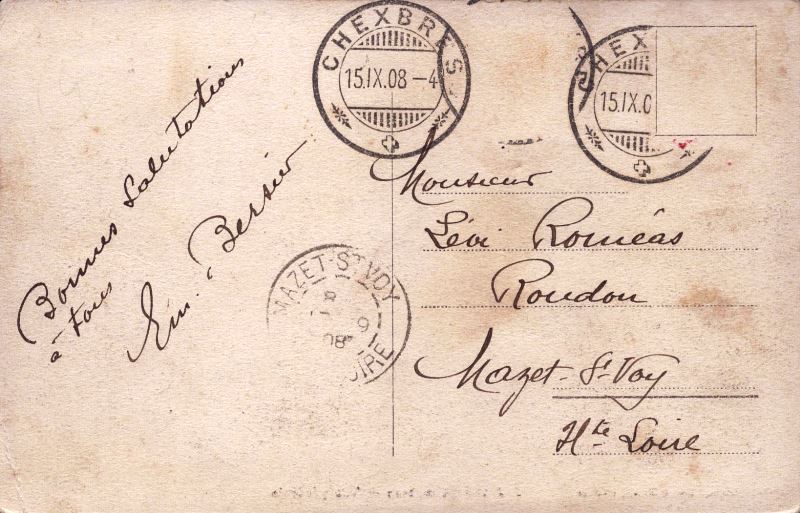 CHEXBRES
15.IX.08-4
CHEX
15.IX.0
Bonnes Salutations
à tous
Em. Bersier
MAZET-ST VOY
08
LOIRE
Monsieur
Lévi Roméas
Roudon
Mazet-St-Voy
Hte Loire